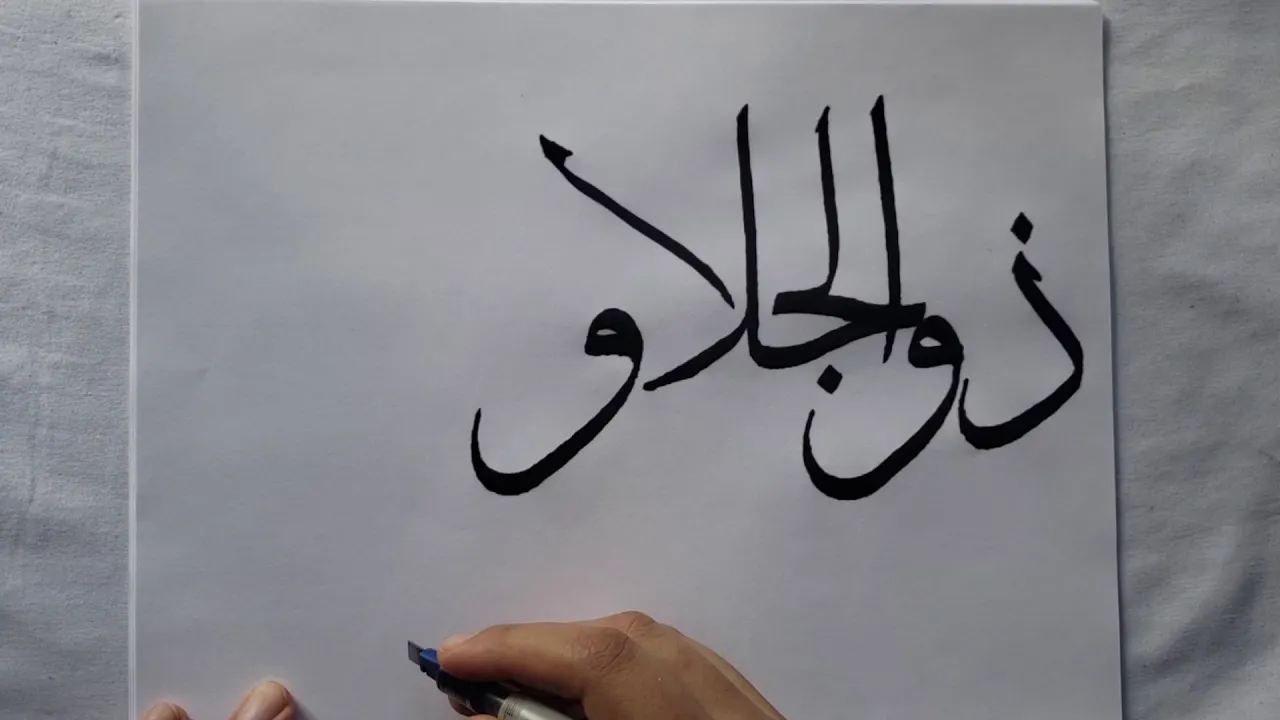 ذوالجلا و